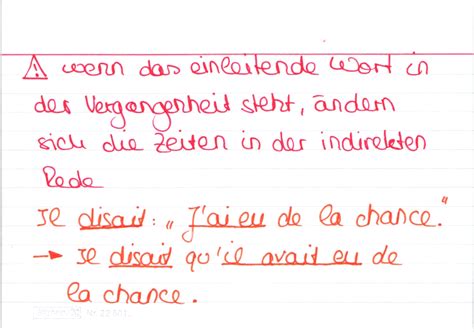 ⚠ wenn das einleitende Wort in
der Vergangenheit steht, ändern
sich die Zeiten in der indirekten
Rede
Il disait: „J'ai eu de la chance."
→ Il disait qu'il avait eu de
la chance.